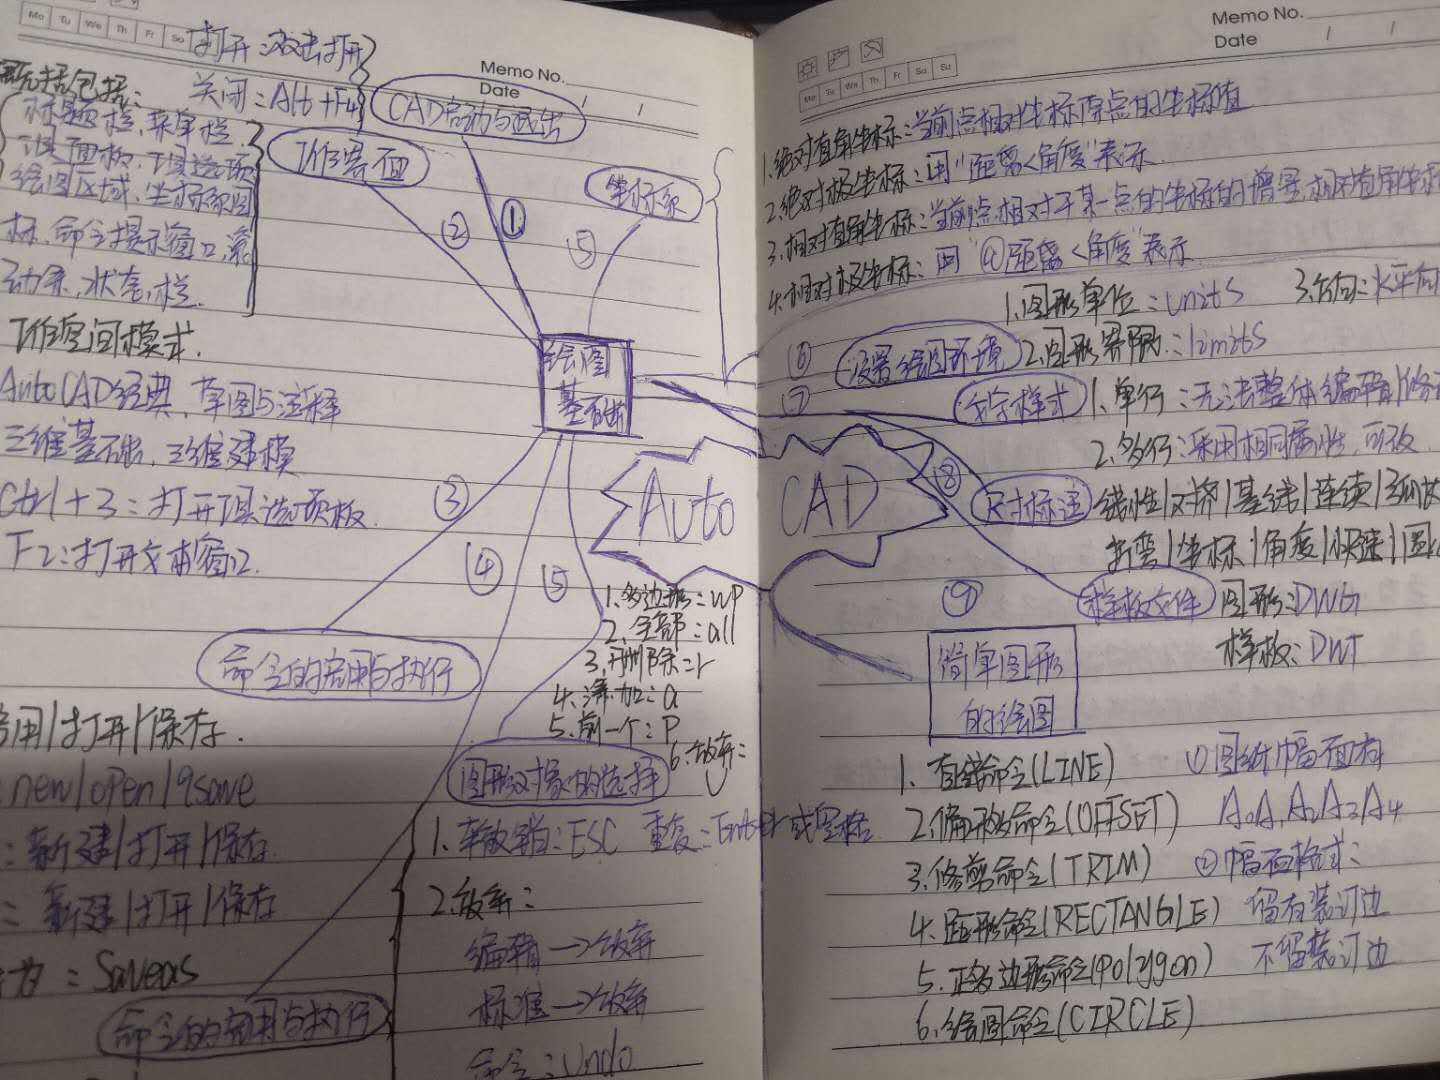 Mo Tu We Th Fr Sa
Memo No.
Date / /
打开:双击打开
关闭:Alt+F4
CAD启动与退出
工作界面
坐标系
标题栏,菜单栏,
工具面板,工具选项
绘图区域,坐标系图
标,命令提示窗口,滚
动条,状态栏.
工作空间模式.
AutoCAD经典,草图与注释
三维基础,三维建模
Ctrl+3:打开工具选项板
F2:打开文本窗口.
绘图
基础
① ② ③ ④ ⑤ ⑤
命令的启用与执行
用|打开|保存.
new|open|qsave
:新建|打开|保存.
:新建|打开|保存
为:Saveas
命令的启用与执行
1.多边形:wp
2.全部:all
3.删除:r
4.添加:a
5.前一个:P
6.放弃:
U
图形对象的选择
1.撤销:ESC 重复:Enter或空格.
2.放弃:
编辑→放弃
标准→放弃
命令:Undo
Auto CAD
Memo No.
Date / /
Mo Tu We Th Fr Sa Su
1.绝对直角坐标:当前点相对坐标原点的坐标值
2.绝对极坐标:用"距离<角度"表示.
3.相对直角坐标:当前点相对于某一点的坐标的增量,相对直角坐标
4.相对极坐标:用"@距离<角度"表示
⑥ 设置绘图环境
1.图形单位:units 3.方向:水平向
2.图形界限:limits
⑦ 文字样式
1.单行:无法整体编辑|修改
2.多行:采用相同属性,可改
⑧ 尺寸标注
线性|对齐|基线|连续|弧
折弯|坐标|角度|快速|圆
⑨ 样板文件 图形:DWG
样板:DWT
简单图形
的绘图
1.直线命令(LINE)
2.偏移命令(OFFSET)
3.修剪命令(TRIM)
4.距形命令(RECTANGLE)
5.正多边形命令(polygon)
6.绘圆命令(CIRCLE)
①图纸幅面有
A0A1A2A3A4
②幅面格式:
留有装订边
不留装订边